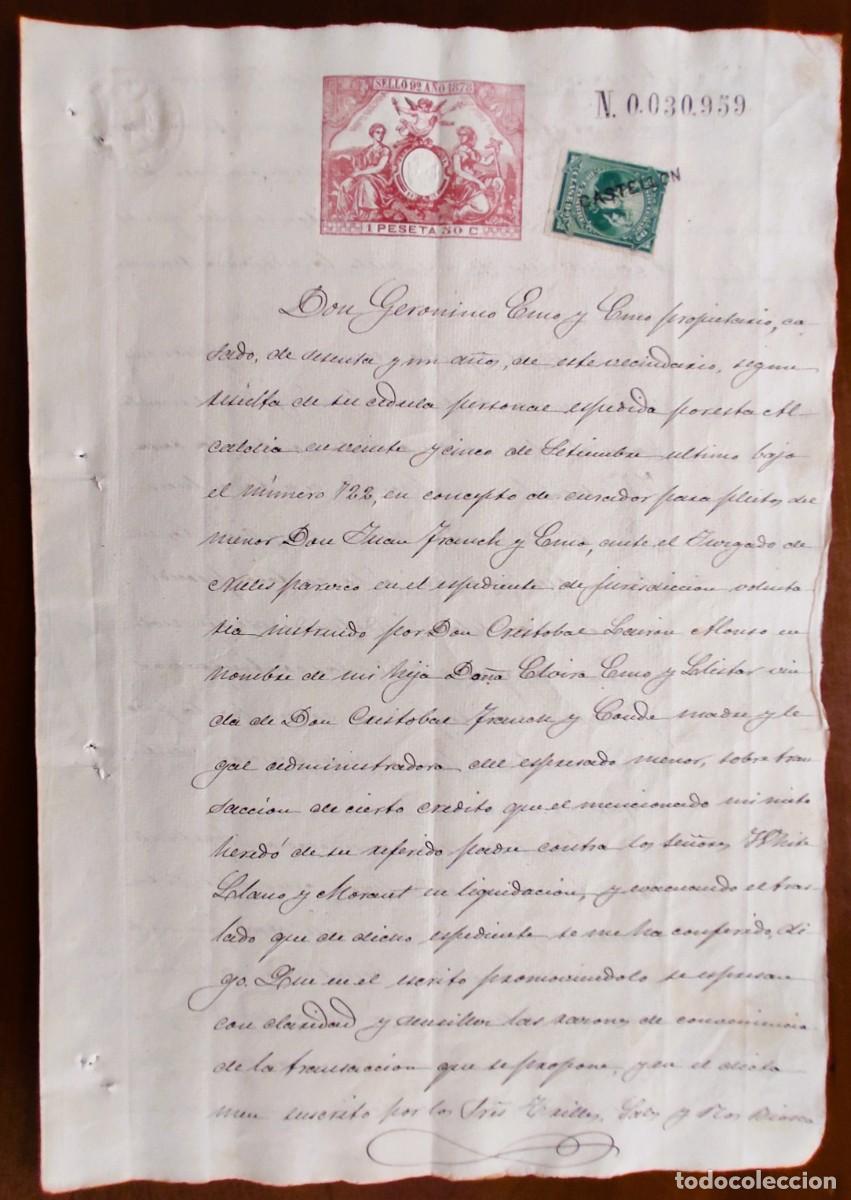 SELLO 9º AÑO 1878
N. 0.030,959
CASTELLON
1 PESETA 50 C
Don Geronimo Emo y Emo propietario, ca-
sado, de sesenta y un años, de este vecindario, segun
resulta de su cedula personal espedida por esta Al-
caldia en veinte y cinco de Setiembre ultimo bajo
el número 722, en concepto de curador para pleitos del
menor Don Juan Franch y Emo, ante el Juzgado de
Nules parezco en el espediente de jurisdiccion volunta
ria instruido por Don Cristobal Lairon Alonso en
nombre de mi hija Doña Elvira Emo y Llistar viu
da de Don Cristobal Franch y Conde madre y le
gal administradora del espresado menor, sobre tran
saccion de cierto credito que el mencionado mi nieto
heredó de su referido padre contra los señores White
Llano y Morant en liquidacion, y evacuando el tras-
lado que de dicho espediente se me ha conferido, di-
go. Que en el escrito promoviendolo se espresan
con claridad y sencillez las razones de conveniencia
de la transaccion que se propone, y en el dicta
men suscrito por los Sres
todocoleccion